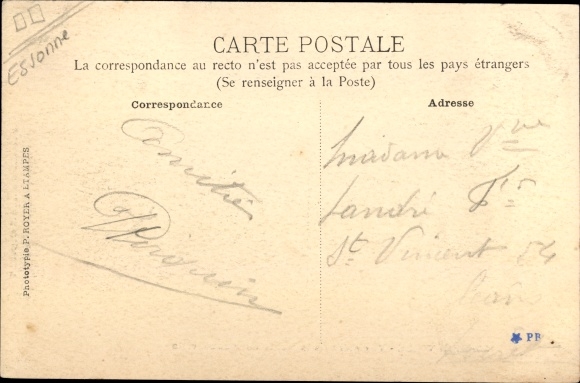 Essonne
CARTE POSTALE
La correspondance au recto n'est pas acceptée par tous les pays étrangers
(Se renseigner à la Poste)
Correspondance
Adresse
Amitié
Madame Vve
Landré
St Vincent 54
Phototypie P. ROYER A ETAMPES
PB